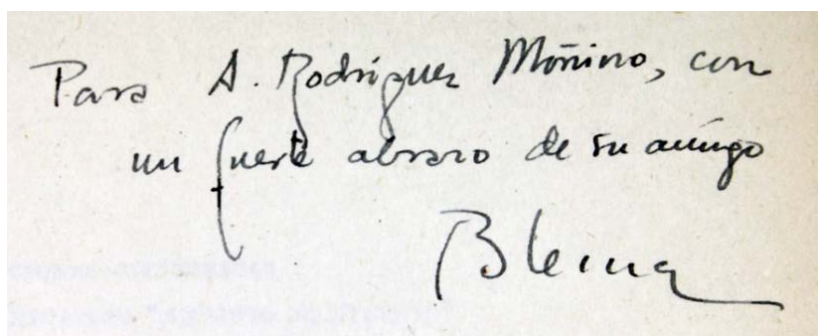 Para A. Rodríguez Moñino, con
un fuerte abrazo de su amigo
Blecua